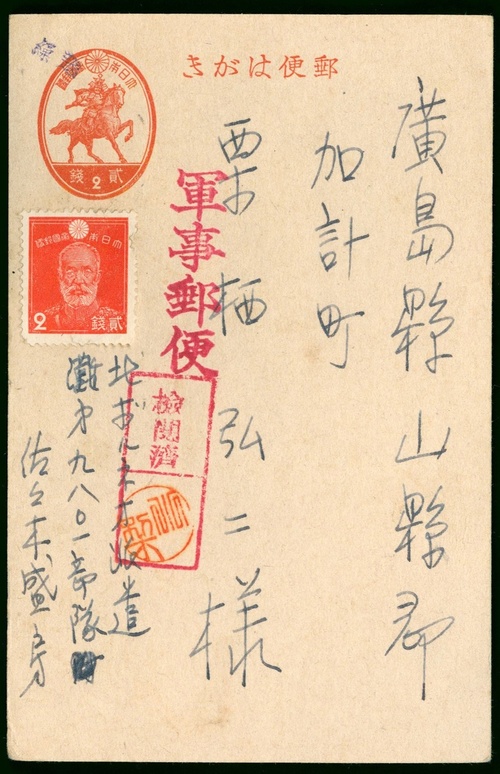 郵便はがき
大日本帝國郵便
貳 2 錢
大日本帝國郵便
2 貳錢
軍事郵便
検閲済
廣島縣山縣郡
加計町
栗栖弘二様
北ボルネオ派遣
灘第九八〇一部隊
佐々木盛房